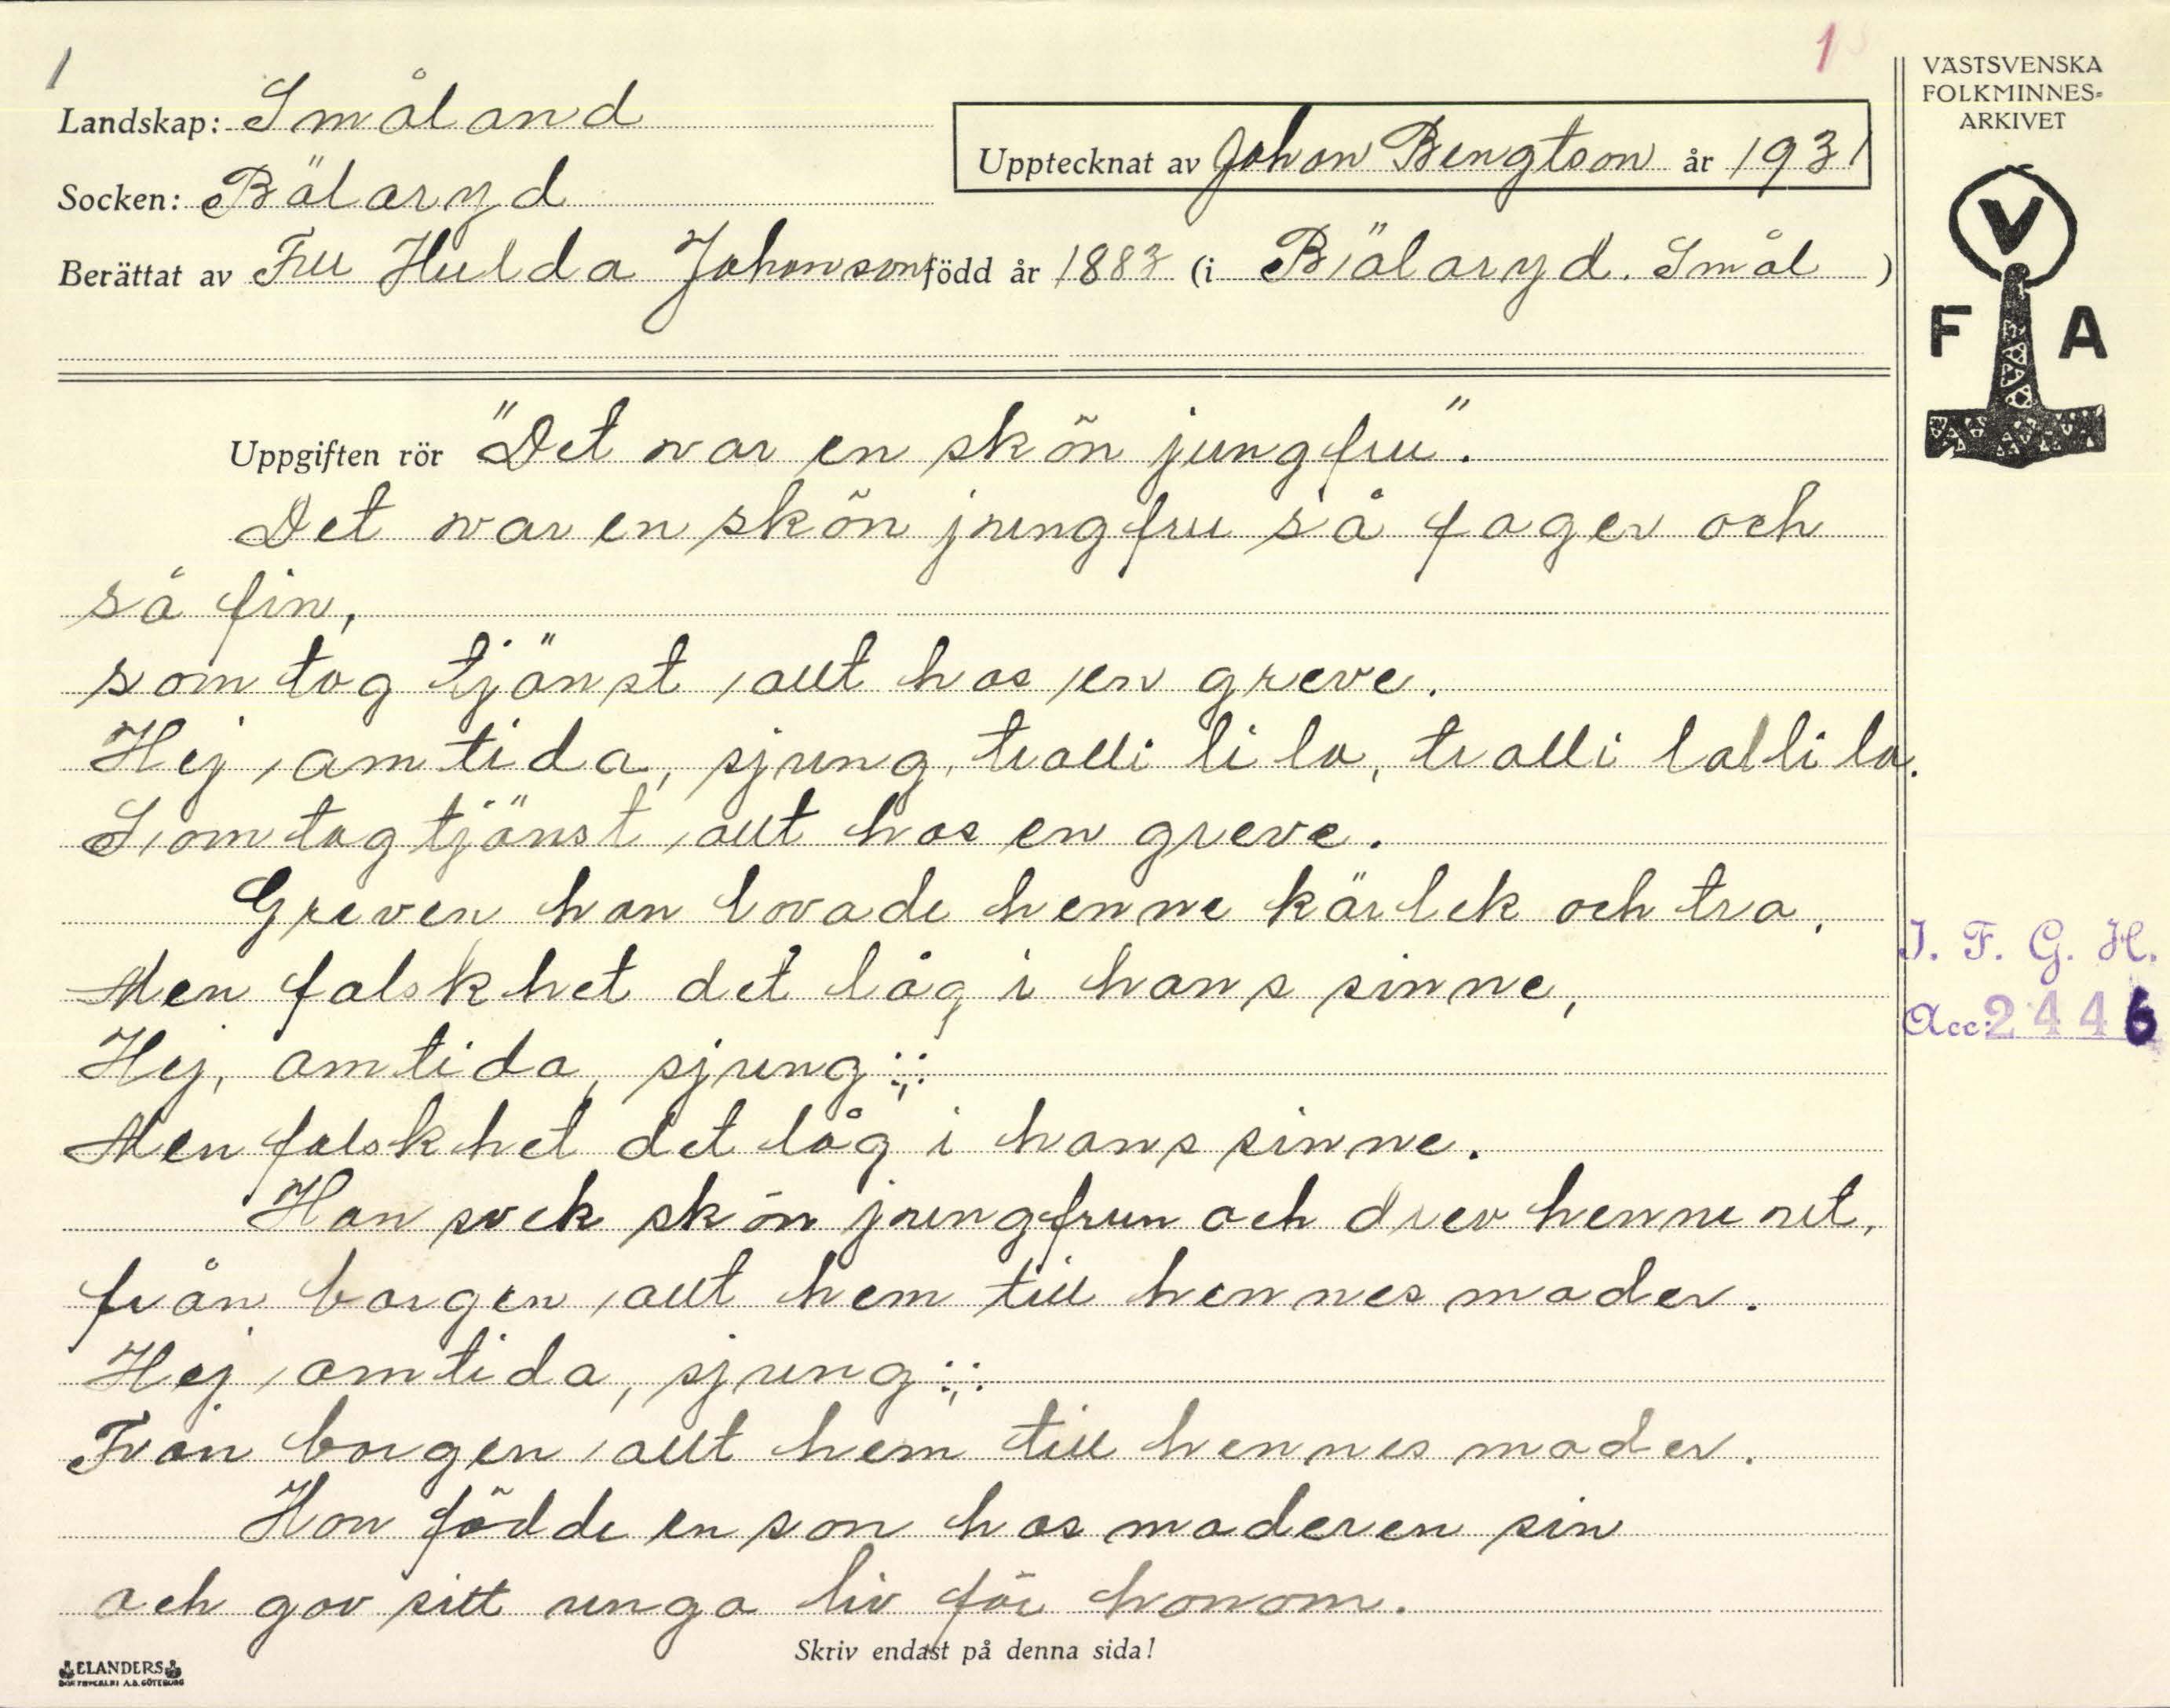 1
1
Landskap: Småland
Socken: Bälaryd
Upptecknat av Johan Bengtson år 1931
Berättat av Fru Hulda Johanson född år 1883 (i Bälaryd. Smål )
VÄSTSVENSKA
FOLKMINNES-
ARKIVET
V
F A
Uppgiften rör "Det var en skön jungfru".
Det var en skön jungfru så fager och
så fin,
som tog tjänst allt hos en greve.
Hej amtida, sjung, tralli li la, tralli lalli la.
Som tog tjänst allt hos en greve.
Greven han lovade henne kärlek och tro,
Men falskhet det låg i hans sinne,
Hej, amtida, sjung :,:
Men falskhet det låg i hans sinne.
Han svek skön jungfrun och drev henne ut,
från borgen allt hem till hennes moder.
Hej amtida, sjung :,:
Från borgen allt hem till hennes moder.
Hon födde en son hos moderen sin
och gav sitt unga liv för honom.
I. F. G. H.
Acc: 2446
Skriv endast på denna sida!
ELANDERS
BOKTRYCKERI A.B. GÖTEBORG